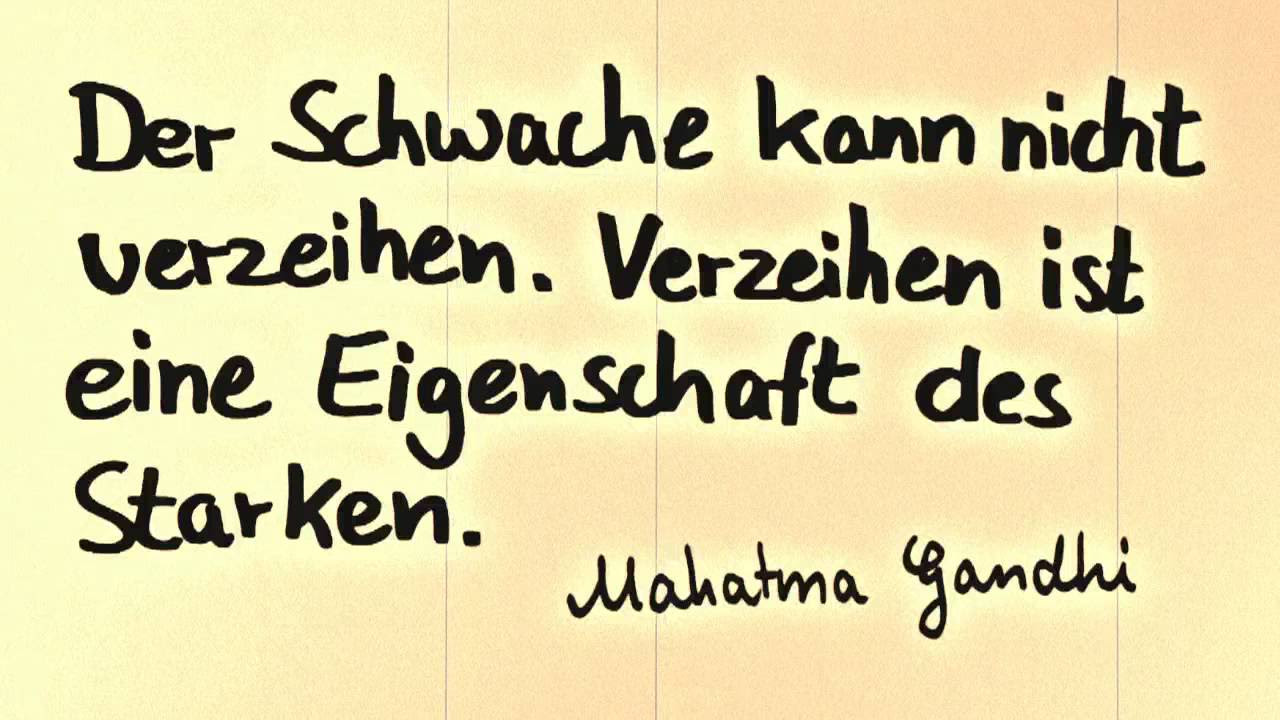 Der Schwache kann nicht
verzeihen. Verzeihen ist
eine Eigenschaft des
Starken.
Mahatma Gandhi